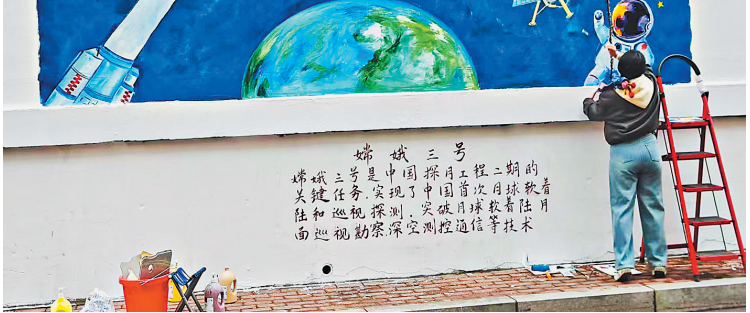 嫦娥三号
嫦娥三号是中国探月工程二期的
关键任务,实现了中国首次月球软着
陆和巡视探测,突破月球软着陆月
面巡视勘察,深空测控通信等技术